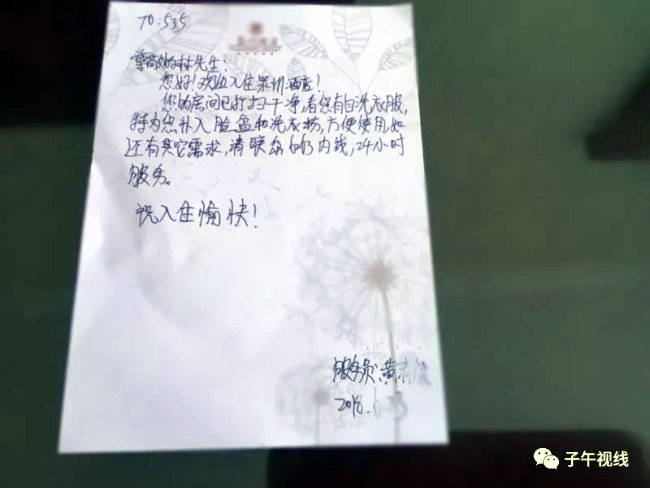 TO:535
尊敬的林先生:
您好!欢迎入住泉州酒店!
您的房间已打扫干净,看您有自洗衣服,
特为您补入脸盆和洗衣粉,方便使用,如
还有其它需求,请联系 内线,24小时
服务。
祝入住愉快!
服务员:黄
2018.6
子午视线